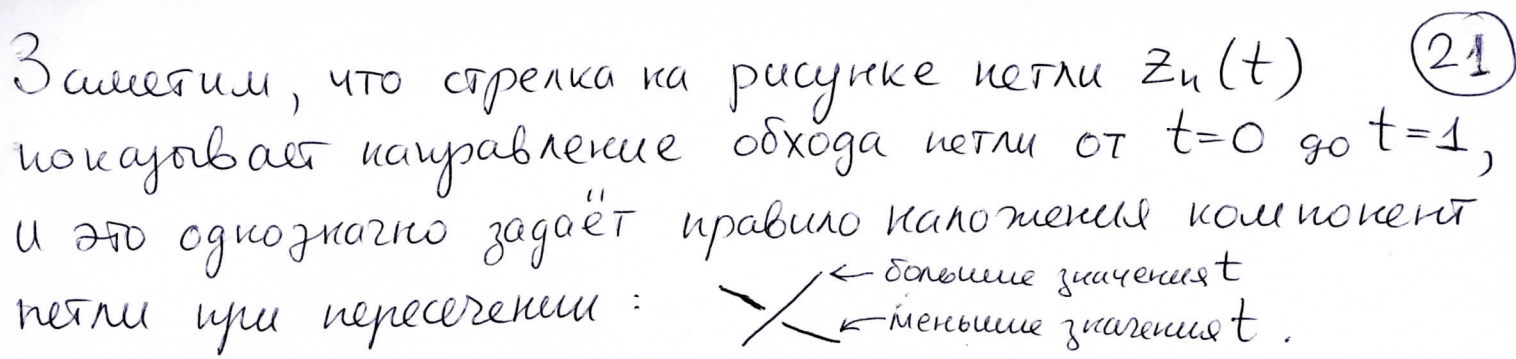 Заметим, что стрелка на рисунке петли Zₙ(t) 21
показывает направление обхода петли от t=0 до t=1,
и это однозначно задаёт правило наложения компонент
петли при пересечении: ← большие значения t
← меньшие значения t.